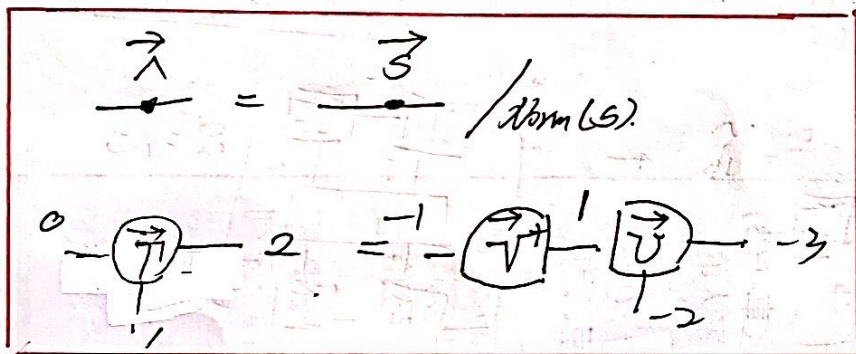 Λ = S /norm(S).
0 T 2 = -1 V† 1 U -3
1 -2